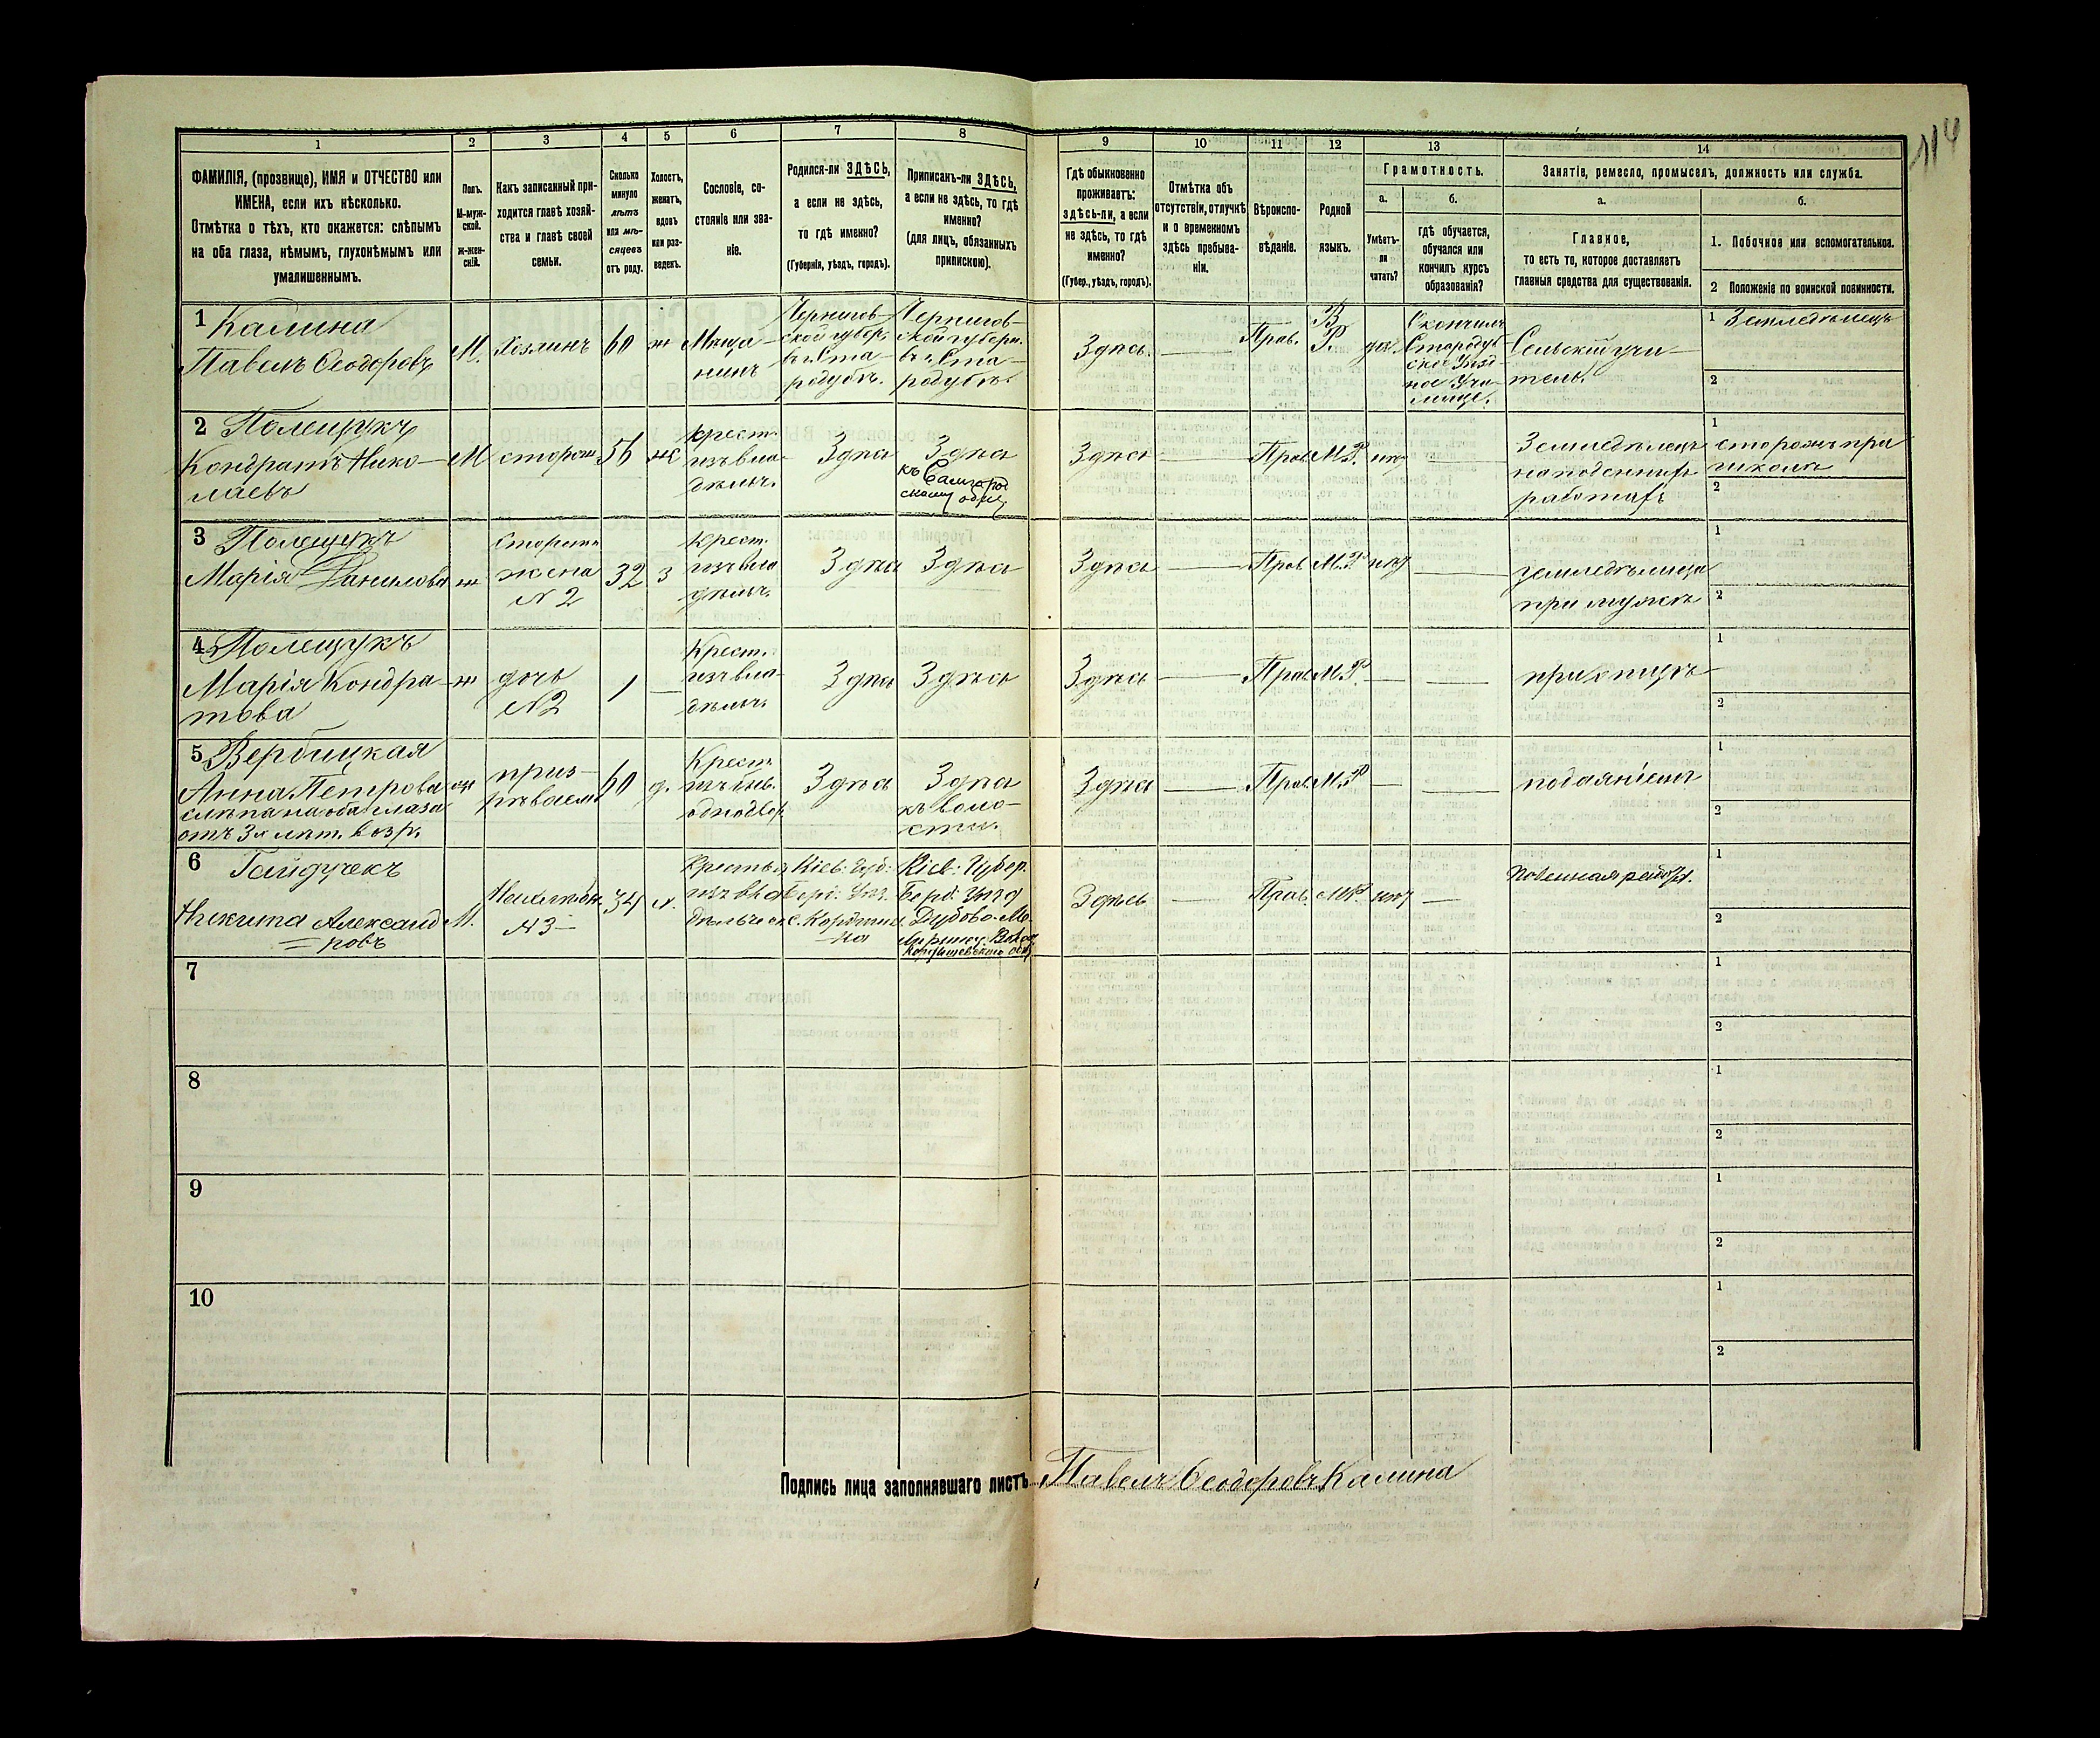 114
1
2
3
4
5
6
7
8
9
10
11
12
13
14
ФАМИЛІЯ, (прозвище), ИМЯ и ОТЧЕСТВО или
ИМЕНА, если ихъ нѣсколько.
Отмѣтка о тѣхъ, кто окажется: слѣпымъ
на оба глаза, нѣмымъ, глухонѣмымъ или
умалишеннымъ.
Полъ.
М-муж-
ской.
ж-жен-
скій.
Какъ записанный при-
ходится главѣ хозяй-
ства и главѣ своей
семьи.
Сколько
минуло
лѣтъ
или мѣ-
сяцевъ
отъ роду.
Холостъ,
женатъ,
вдовъ
или раз-
веденъ.
Сословіе, со-
стояніе или зва-
ніе.
Родился-ли ЗДѢСЬ,
а если не здѣсь,
то гдѣ именно?
(Губернія, уѣздъ, городъ).
Приписанъ-ли ЗДѢСЬ,
а если не здѣсь, то гдѣ
именно?
(для лицъ, обязанныхъ
припискою).
Гдѣ обыкновенно
проживаетъ:
здѣсь-ли, а если
не здѣсь, то гдѣ
именно?
(Губер., уѣздъ, городъ).
Отмѣтка объ
отсутствіи, отлучкѣ
и о временномъ
здѣсь пребыва-
ніи.
Вѣроиспо-
вѣданіе.
Родной
языкъ.
Грамотность.
а.
б.
Умѣетъ-
ли
читать?
гдѣ обучается,
обучался или
кончилъ курсъ
образованія?
Занятіе, ремесло, промыселъ, должность или служба.
а.
б.
Главное,
то есть то, которое доставляетъ
главныя средства для существованія.
1. Побочное или вспомогательное.
2 Положеніе по воинской повинности.
1 Калина
Павелъ Ѳеодоровъ
М.
Хозяинъ
60
ж
Мѣща-
нинъ
Чернигов-
ской губер.
въ г. Ста-
родубѣ.
Чернигов-
ской губерн.
въ г. Ста-
родубѣ.
Здѣсь.
Прав.
В
Р.
да.
Окончилъ
Стародуб
ское Уѣзд
ное Учи-
лище.
Сельскій учи-
тель.
1 Земледѣлецъ
2
2 Полещукъ
Кондратъ Нико-
лаевъ
М
сторож
56
ж
крест.
изъ вла-
дѣльч.
Здѣсь
Здѣсь
къ
Здѣсь
Прав.
М.Р.
нѣт
Земледѣлецъ
на поденных
работах
1
сторожъ при
школѣ
2
3 Полещукъ
Марія Данилова
ж
жена
N 2
32
з
крест.
изъ вла
дѣльч.
Здѣсь
Здѣсь
Здѣсь
Прав.
М.Р
нѣт
земледѣлица
при мужѣ
1
2
4 Полещукъ
Марія Кондра-
това
ж
дочь
N2
1
Крест.
изъ вла-
дѣльч.
Здѣсь
Здѣсь
Здѣсь
Прав.
М.Р.
при отцѣ
1
2
5 Вербицкая
Анна Петрова
слѣпа на оба глаза
отъ 3х лѣт. возр.
ж
приз-
рѣваем.
60
д.
Крест.
изъ быв.
однодвор.
Здѣсь
Здѣсь
къ воло-
сти.
Здѣсь
Прав.
М.Р
подаяніемъ
1
2
6 Гайдучекъ
Никита Александ
ровъ
М.
N 3
34
Крестьян
изъ вла
дѣльческ.
Кіев: Губ:
Берд: Уѣз.
Кіев: Губер.
Берд: Уѣзд
Здѣсь
Прав.
М.Р.
нѣт
1
2
7
1
2
8
1
2
9
1
2
10
1
2
Подпись лица заполнявшаго листъ Павелъ Ѳеодоровъ Калина